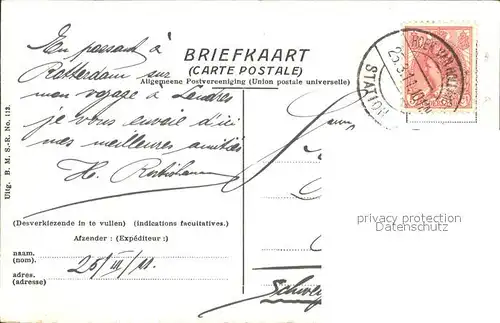 BRIEFKAART
(CARTE POSTALE)
Algemeene Postvereeniging (Union postale universelle)
En passant à
Rotterdam sur
mon voyage à Londres
je vous envoie d'ici
mes meilleures amitiés
(Desverkiezende in te vullen) (indications facultatives.)
Afzender : (Expéditeur :)
naam.
(nom).
adres.
(adresse)
25/III/11.
Uitg. B. M. S.-R. No. 113.
HOEK
25.3.11
STATION
privacy protection
watermark
Schweiz